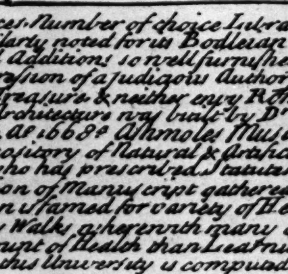 ces. Number of choice Libra
larly noted for its Bodleian
l Additions so well furnishe
ression of a judicious Author
Treasure & neither envy Ro
Architecture was built by D
Ao 1668 Ashmoles Muse
ository of Natural & Artific
who has prescribed Statute
on of Manuscript gathere
n is famed for variety of He
s Walks wherewith many
ount of Health than Learni
this University is computed